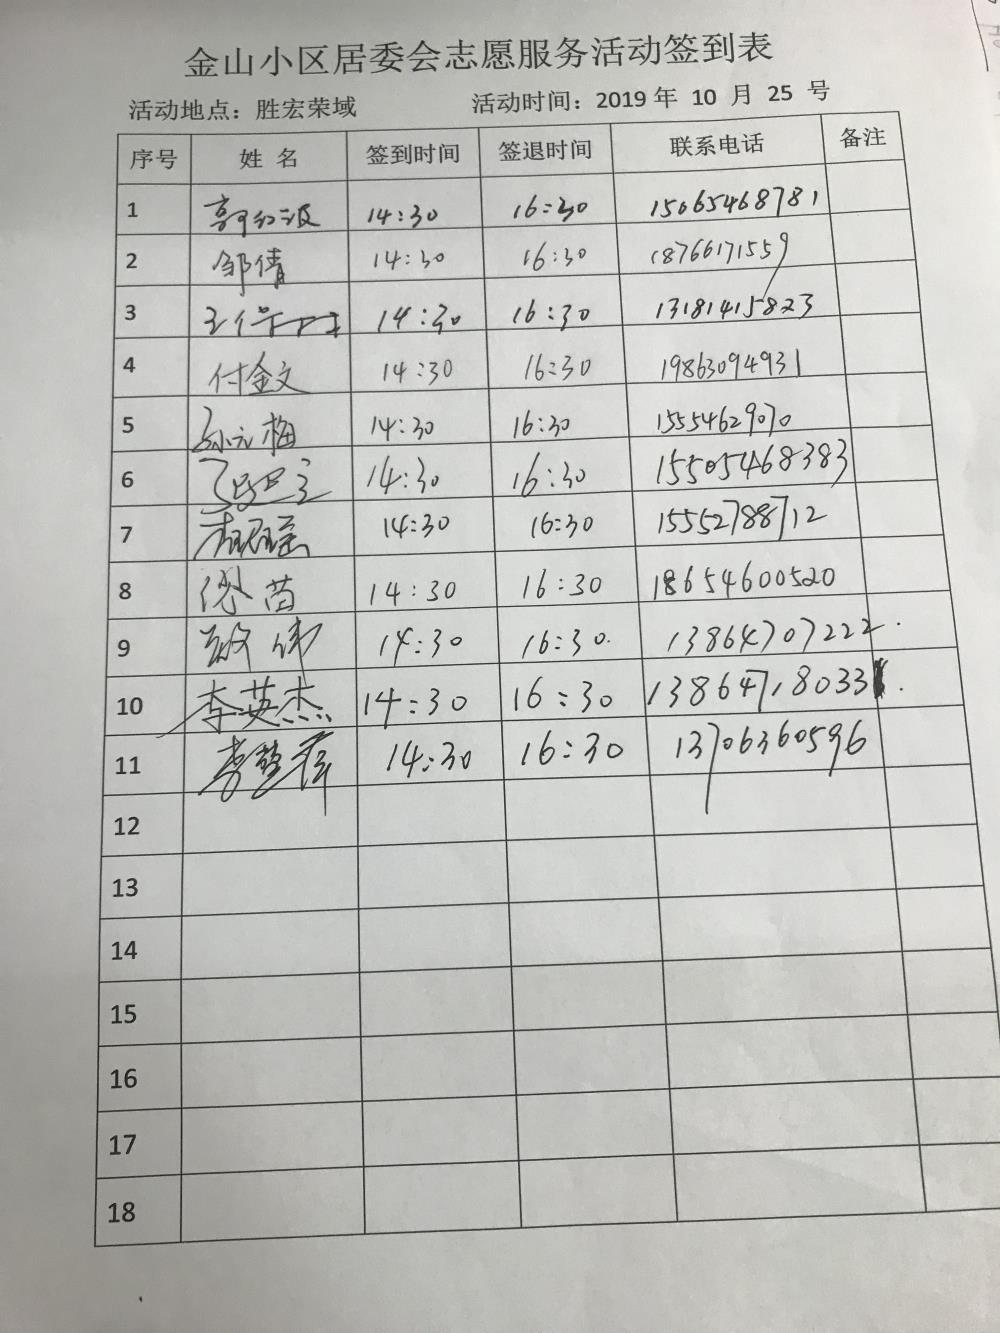 金山小区居委会志愿服务活动签到表
活动地点：胜宏荣域 活动时间：2019 年 10 月 25 号
序号 姓 名 签到时间 签退时间 联系电话 备注
1 郭红波 14:30 16:30 15065468781
2 邹倩 14:30 16:30 18766171559
3 14:30 16:30 13181415823
4 付金文 14:30 16:30 19863094931
5 孙元梅 14:30 16:30 15554629070
6 14:30 16:30 15505468383
7 14:30 16:30 15552788712
8 苗 14:30 16:30 18654600520
9 伟 14:30 16:30. 13864707222.
10 李英杰 14:30 16:30 13864718033
11 李 萍 14:30 16:30 13706360596
12
13
14
15
16
17
18